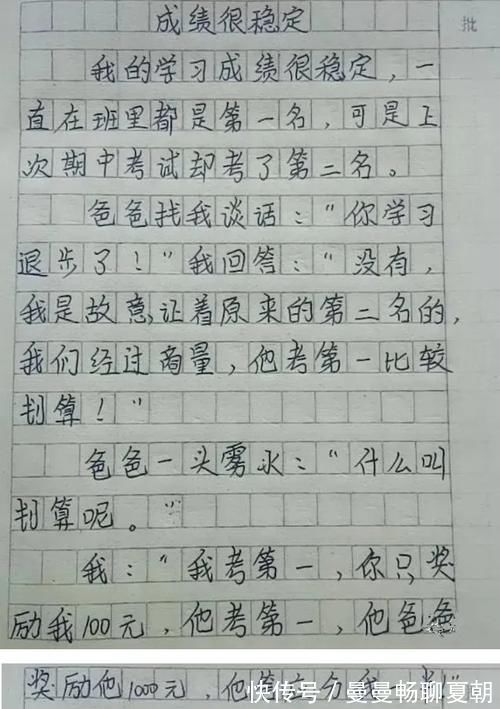 成绩很稳定
批
我的学习成绩很稳定，一
直在班里都是第一名，可是上
次期中考试却考了第二名。
爸爸找我谈话：“你学习
退步了！”我回答：“没有，
我是故意让着原来的第二名的，
我们经过商量，他考第一比较
划算！”
爸爸一头雾水：“什么叫
划算呢。”
我：“我考第一，你只奖
励我100元，他考第一，他爸爸
奖励他1000元，他
快传号/曼曼畅聊夏朝